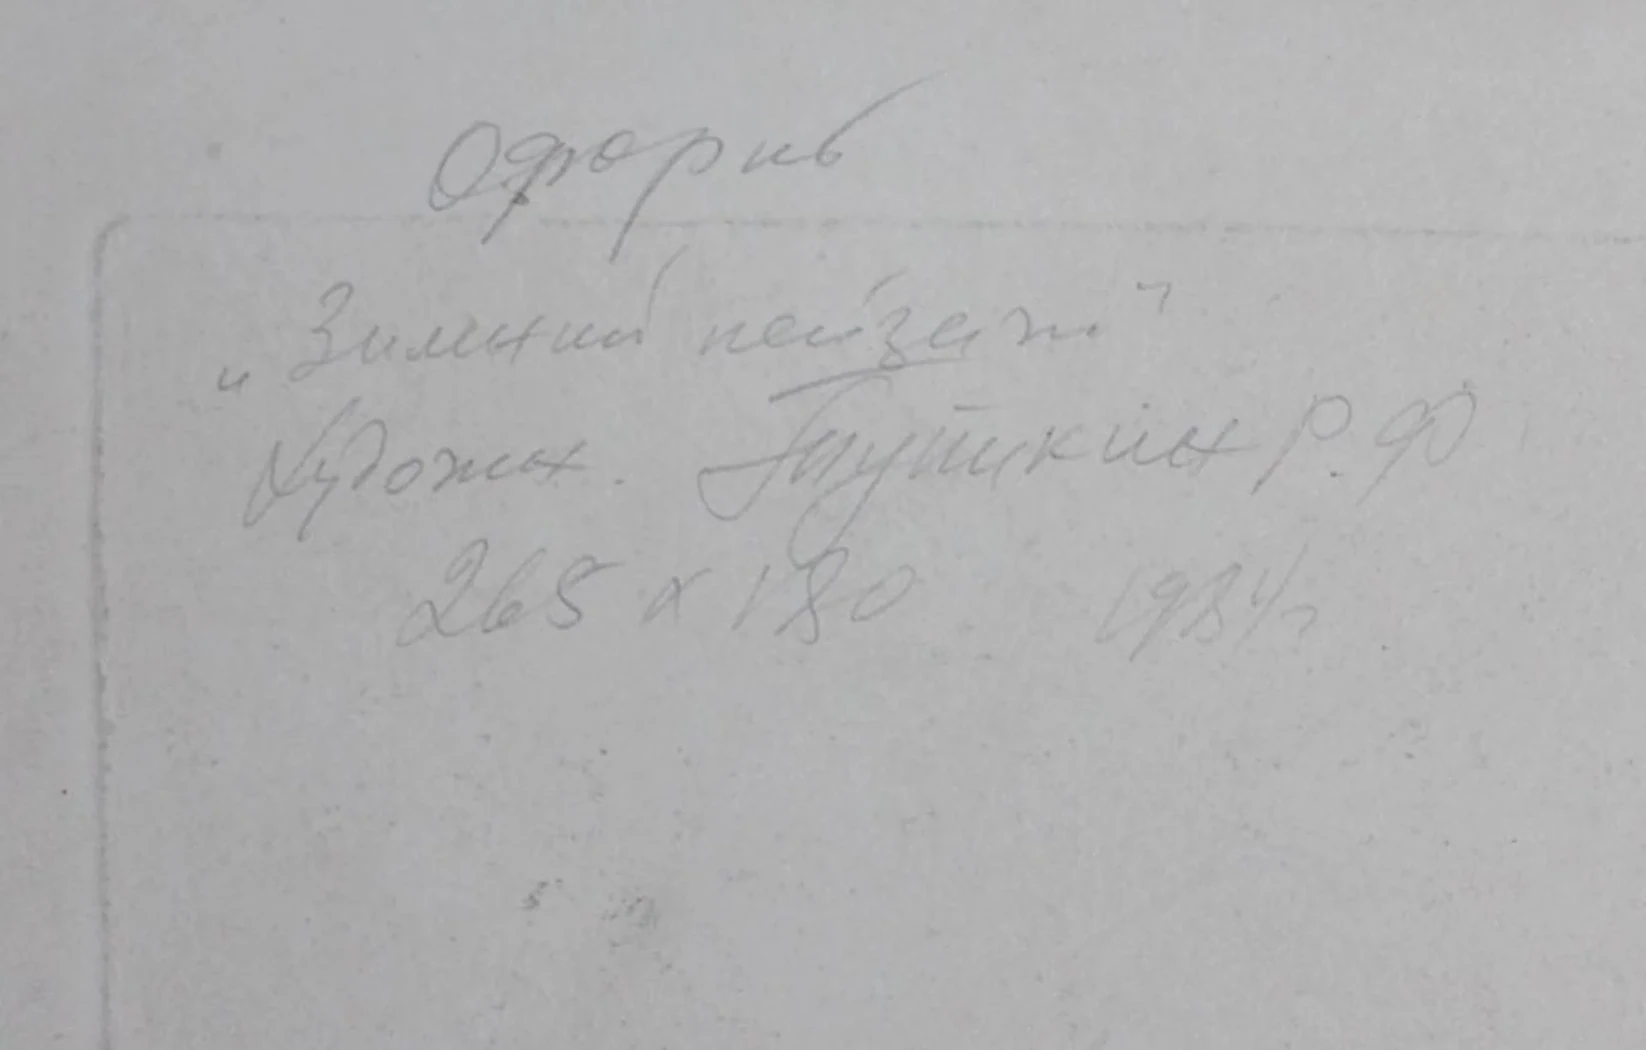 Офорт
„Зимний пейзаж"
Художн. Р.Ф
265 x 180 1984г